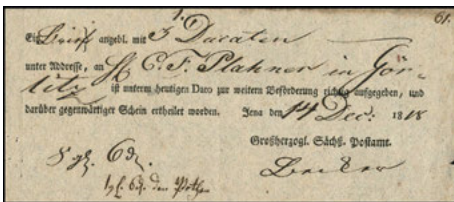 1. 61.
Ein Brief angebl. mit 3 Ducaten
unter Addresse, an H C. F. Plahner in Gör-
litz ist unterm heutigen Dato zur weitern Beförderung richtig aufgegeben, und
darüber gegenwärtiger Schein ertheilet worden. Jena den 14 Dec: 1818
Großherzogl. Sächß. Postamt.
5 gr. 6 d. Becker